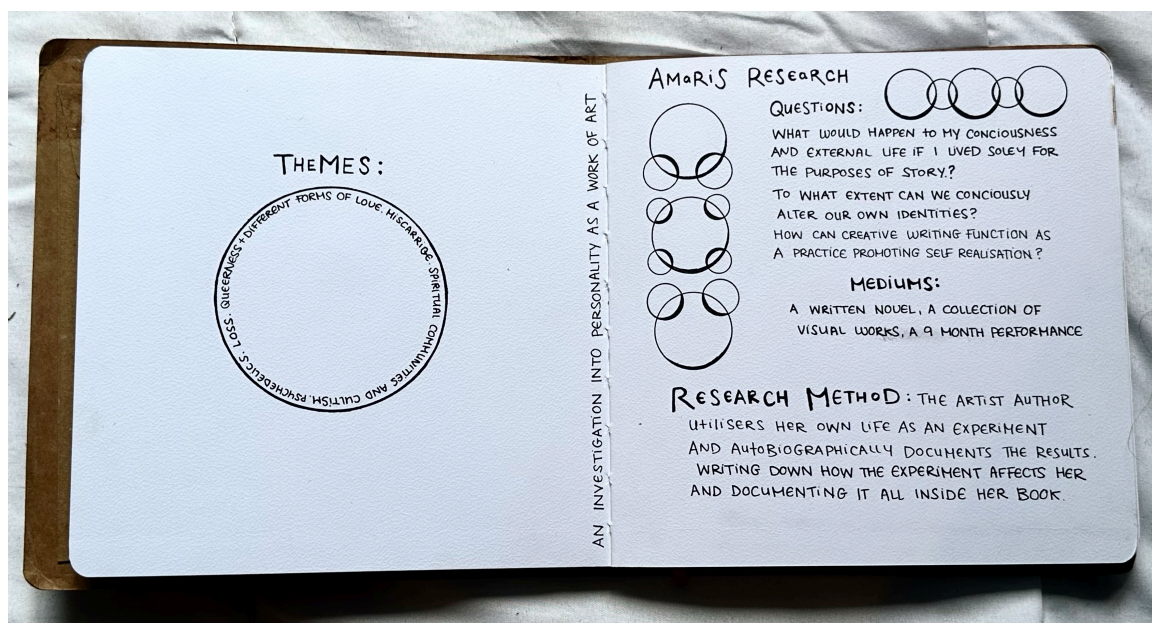 THEMES:
QUEERNESS + DIFFERENT FORMS OF LOVE. MISCARRIGE. SPIRITUAL COMMUNITIES AND CULTISM. PSYCHEDELICS. LOSS.
AN INVESTIGATION INTO PERSONALITY AS A WORK OF ART
AMARIS RESEARCH
QUESTIONS:
WHAT WOULD HAPPEN TO MY CONCIOUSNESS
AND EXTERNAL LIFE IF I LIVED SOLEY FOR
THE PURPOSES OF STORY?
TO WHAT EXTENT CAN WE CONCIOUSLY
ALTER OUR OWN IDENTITIES?
HOW CAN CREATIVE WRITING FUNCTION AS
A PRACTICE PROMOTING SELF REALISATION?
MEDIUMS:
A WRITTEN NOVEL, A COLLECTION OF
VISUAL WORKS, A 9 MONTH PERFORMANCE
RESEARCH METHOD: THE ARTIST AUTHOR
UTILISERS HER OWN LIFE AS AN EXPERIMENT
AND AUTOBIOGRAPHICALLY DOCUMENTS THE RESULTS.
WRITING DOWN HOW THE EXPERIMENT AFFECTS HER
AND DOCUMENTING IT ALL INSIDE HER BOOK.